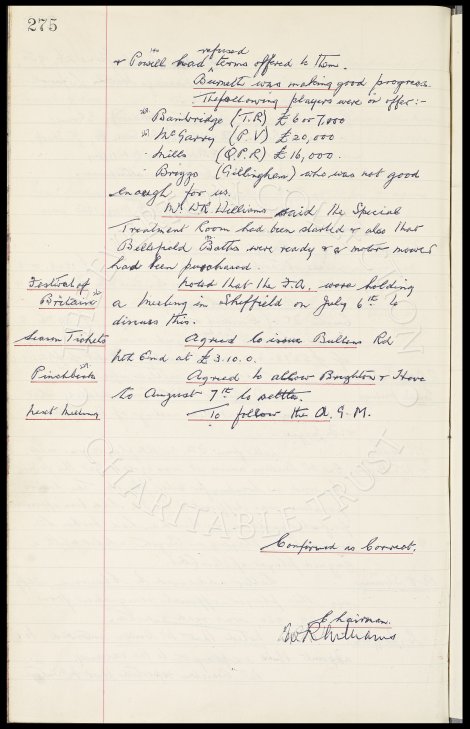 275
& Powell had refused terms offered to them.
Burnett was making good progress.
The following players were on offer:-
Bainbridge (T.R) £6 or 7,000
McGarry (P.V) £20,000
Mills (Q.P.R) £16,000.
Briggs (Gillingham) who was not good
enough for us.
Mr W.R. Williams said the Special
Treatment Room had been started & also that
Bellefield Baths were ready & a motor mower
had been purchased.
Festival of Britain
Noted that the F.A. were holding
a meeting in Sheffield on July 6th to
discuss this.
Season Tickets
Agreed to issue Bullens Rd
Nth End at £3.10.0.
Pinchbeck
Agreed to allow Brighton & Hove
to August 7th to settle.
Next Meeting
To follow the A.G.M.
Confirmed as Correct.
Chairman.
W R Williams
CHARITABLE TRUST